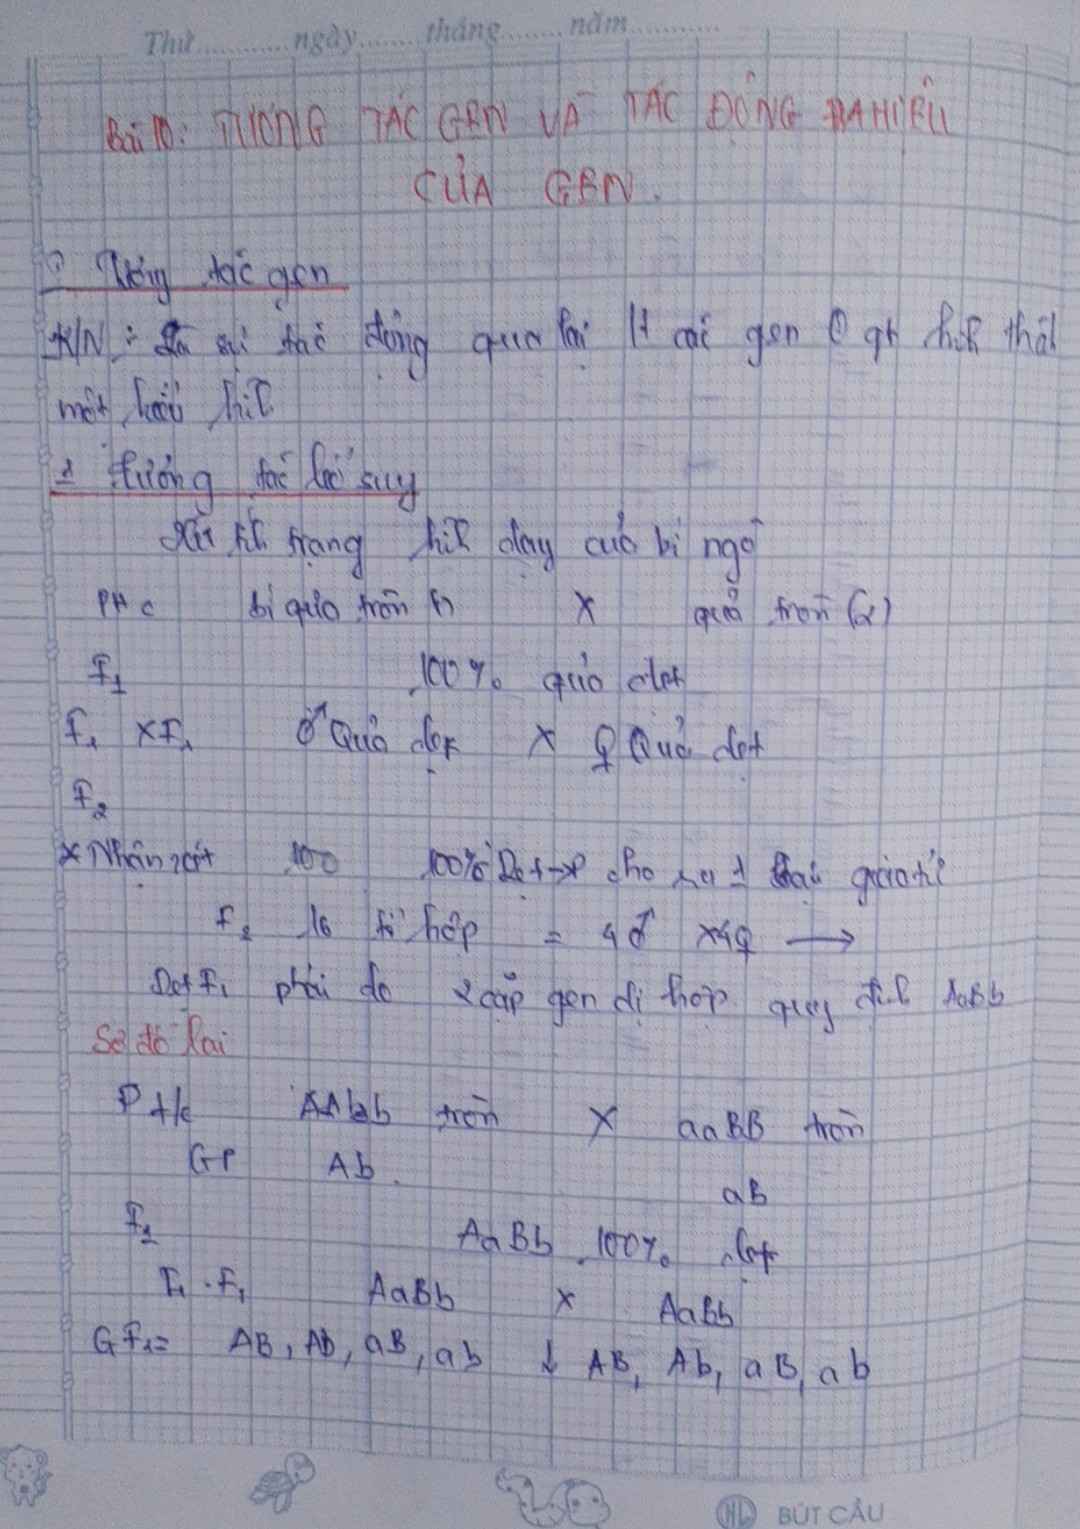 Thứ ngày tháng năm
Bài 10: TƯƠNG TÁC GEN VÀ TÁC ĐỘNG ĐA HIỆU
CỦA GEN.
Tương tác gen
K/N: là sự tác động qua lại các gen
một kiểu
1 tương tác bổ suy
trạng dạy cuả bí ngô
bí quả tròn (1) x quả tròn (2)
F1 100% quả dẹt
F1 x F1 ♂ Quả dẹt x ♀ Quả dẹt
F2
x Nhận xét 100 100% Dẹt → cho ra 1 loại giao tử
F2 16 tổ hợp = 4♂ x4♀ →
Dẹt F1 phải do 2 cặp gen dị hợp quy AaBb
Sơ đồ lai
P t/c AAbb tròn x aaBB tròn
GP Ab
aB
F1 AaBb 100% dẹt
F1 . F1 AaBb x AaBb
GF1= AB, Ab, aB, ab ↓ AB, Ab, aB, ab
HL BÚT CÂU